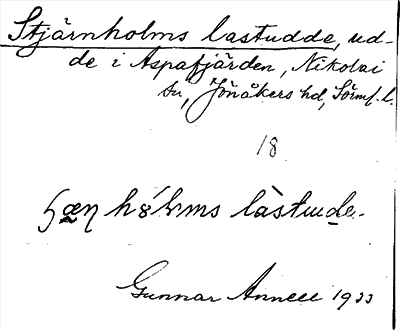 Stjärnholms lastudde, ud-
de i Aspafjärden, Nikolai
sn, Jönåkers hd, Sörml. l.
18
hɷ́lms làstude.
Gunnar Annell 1933